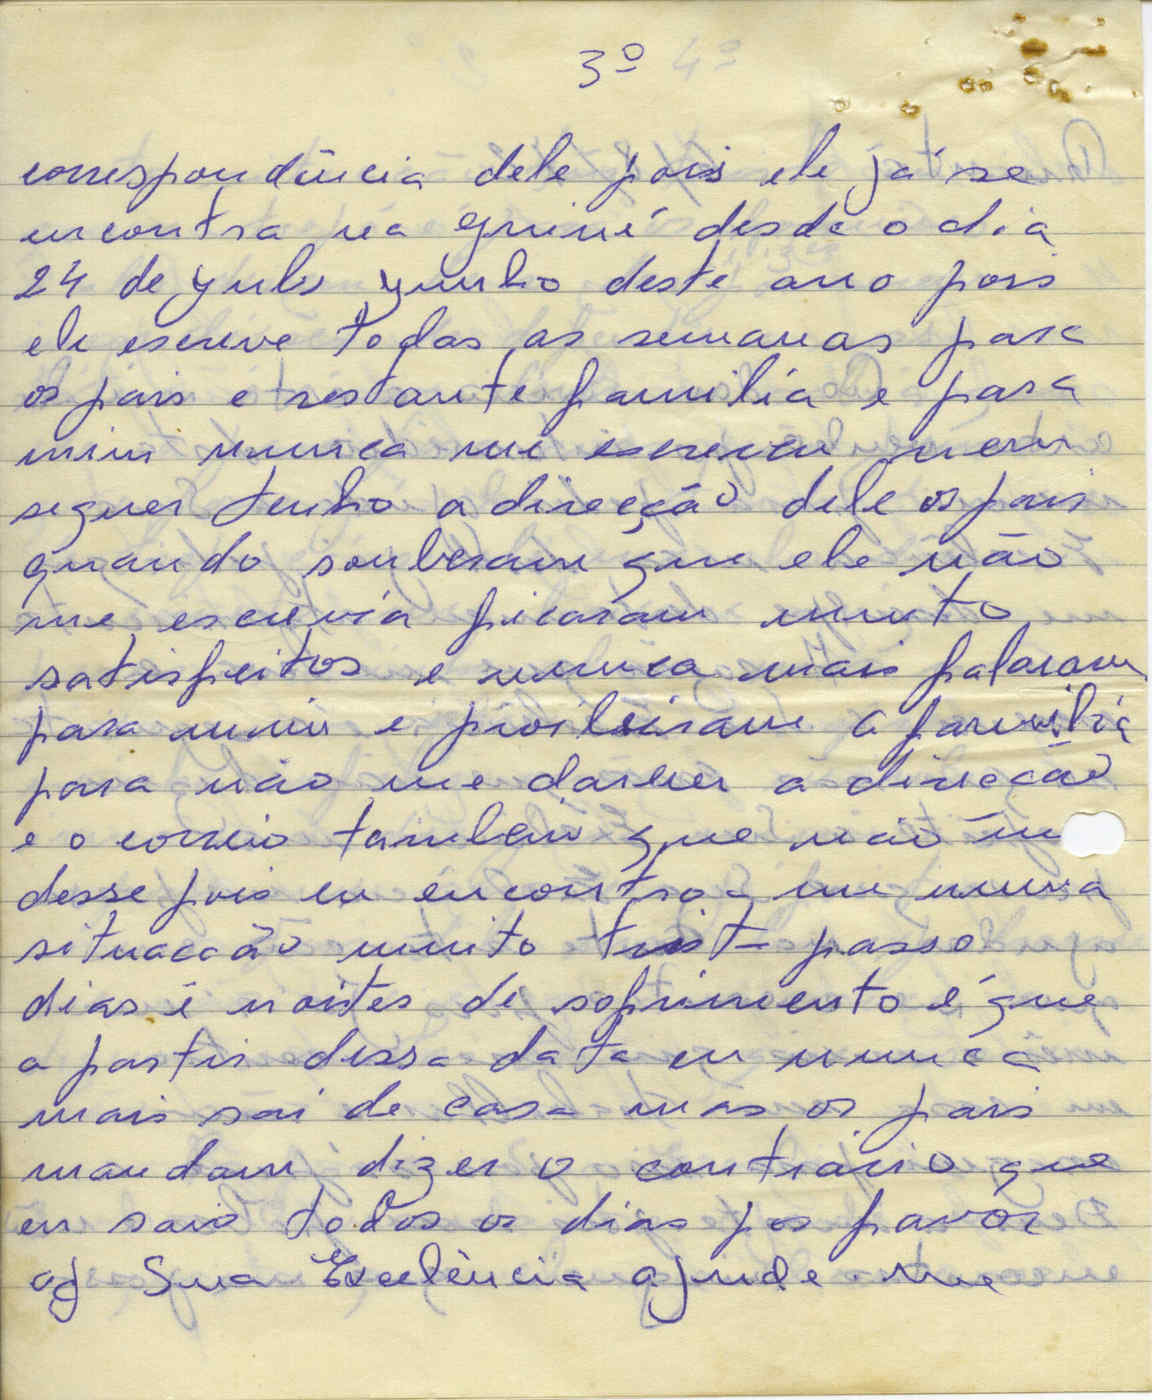 3º
correspondência dele pois ele já se
encontra na Guiné desde o dia
24 de yulo yunho deste ano pois
ele escreve todas as semanas para
os pais e restante familia e para
mim nunca me escreveu nem
sequer tenho a direcção dele os pais
quando souberam que ele não
me escrevia ficaram muito
satisfeitos e nunca mais falaram
para mim e proibiram a familia
para não me darem a direcção
e o correio tambem que não
desse pois eu encontro-me numa
situacção muito triste passo
dias e noites de sofrimento é que
a partir dessa data eu nunca
mais sai de casa mas os pais
mandam dizer o contrário que
eu saio todos os dias por favor
Sua Excelência ajude me